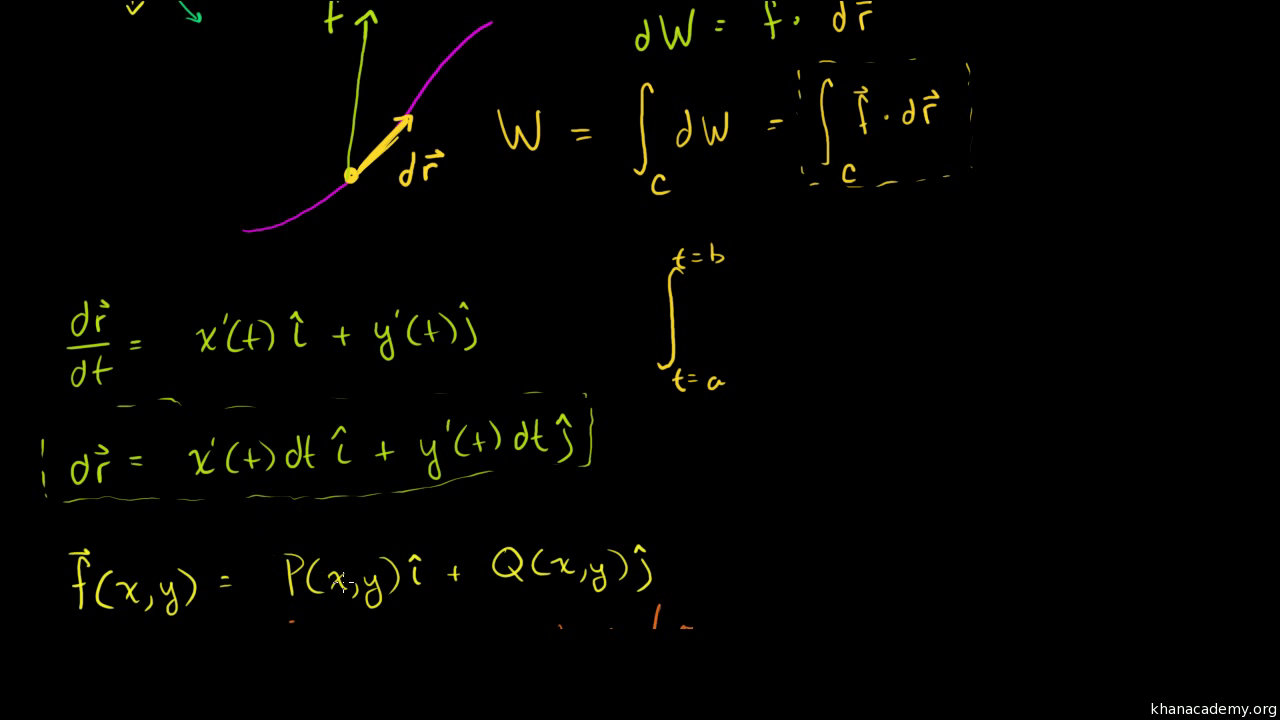 f
dW = f · dr⃗
W = ∫_C dW = ∫_C f⃗ · dr⃗
dr⃗
∫_{t=a}^{t=b}
dr⃗/dt = x'(t) î + y'(t) ĵ
dr⃗ = x'(t) dt î + y'(t) dt ĵ
f⃗(x,y) = P(x,y) î + Q(x,y) ĵ
khanacademy.org